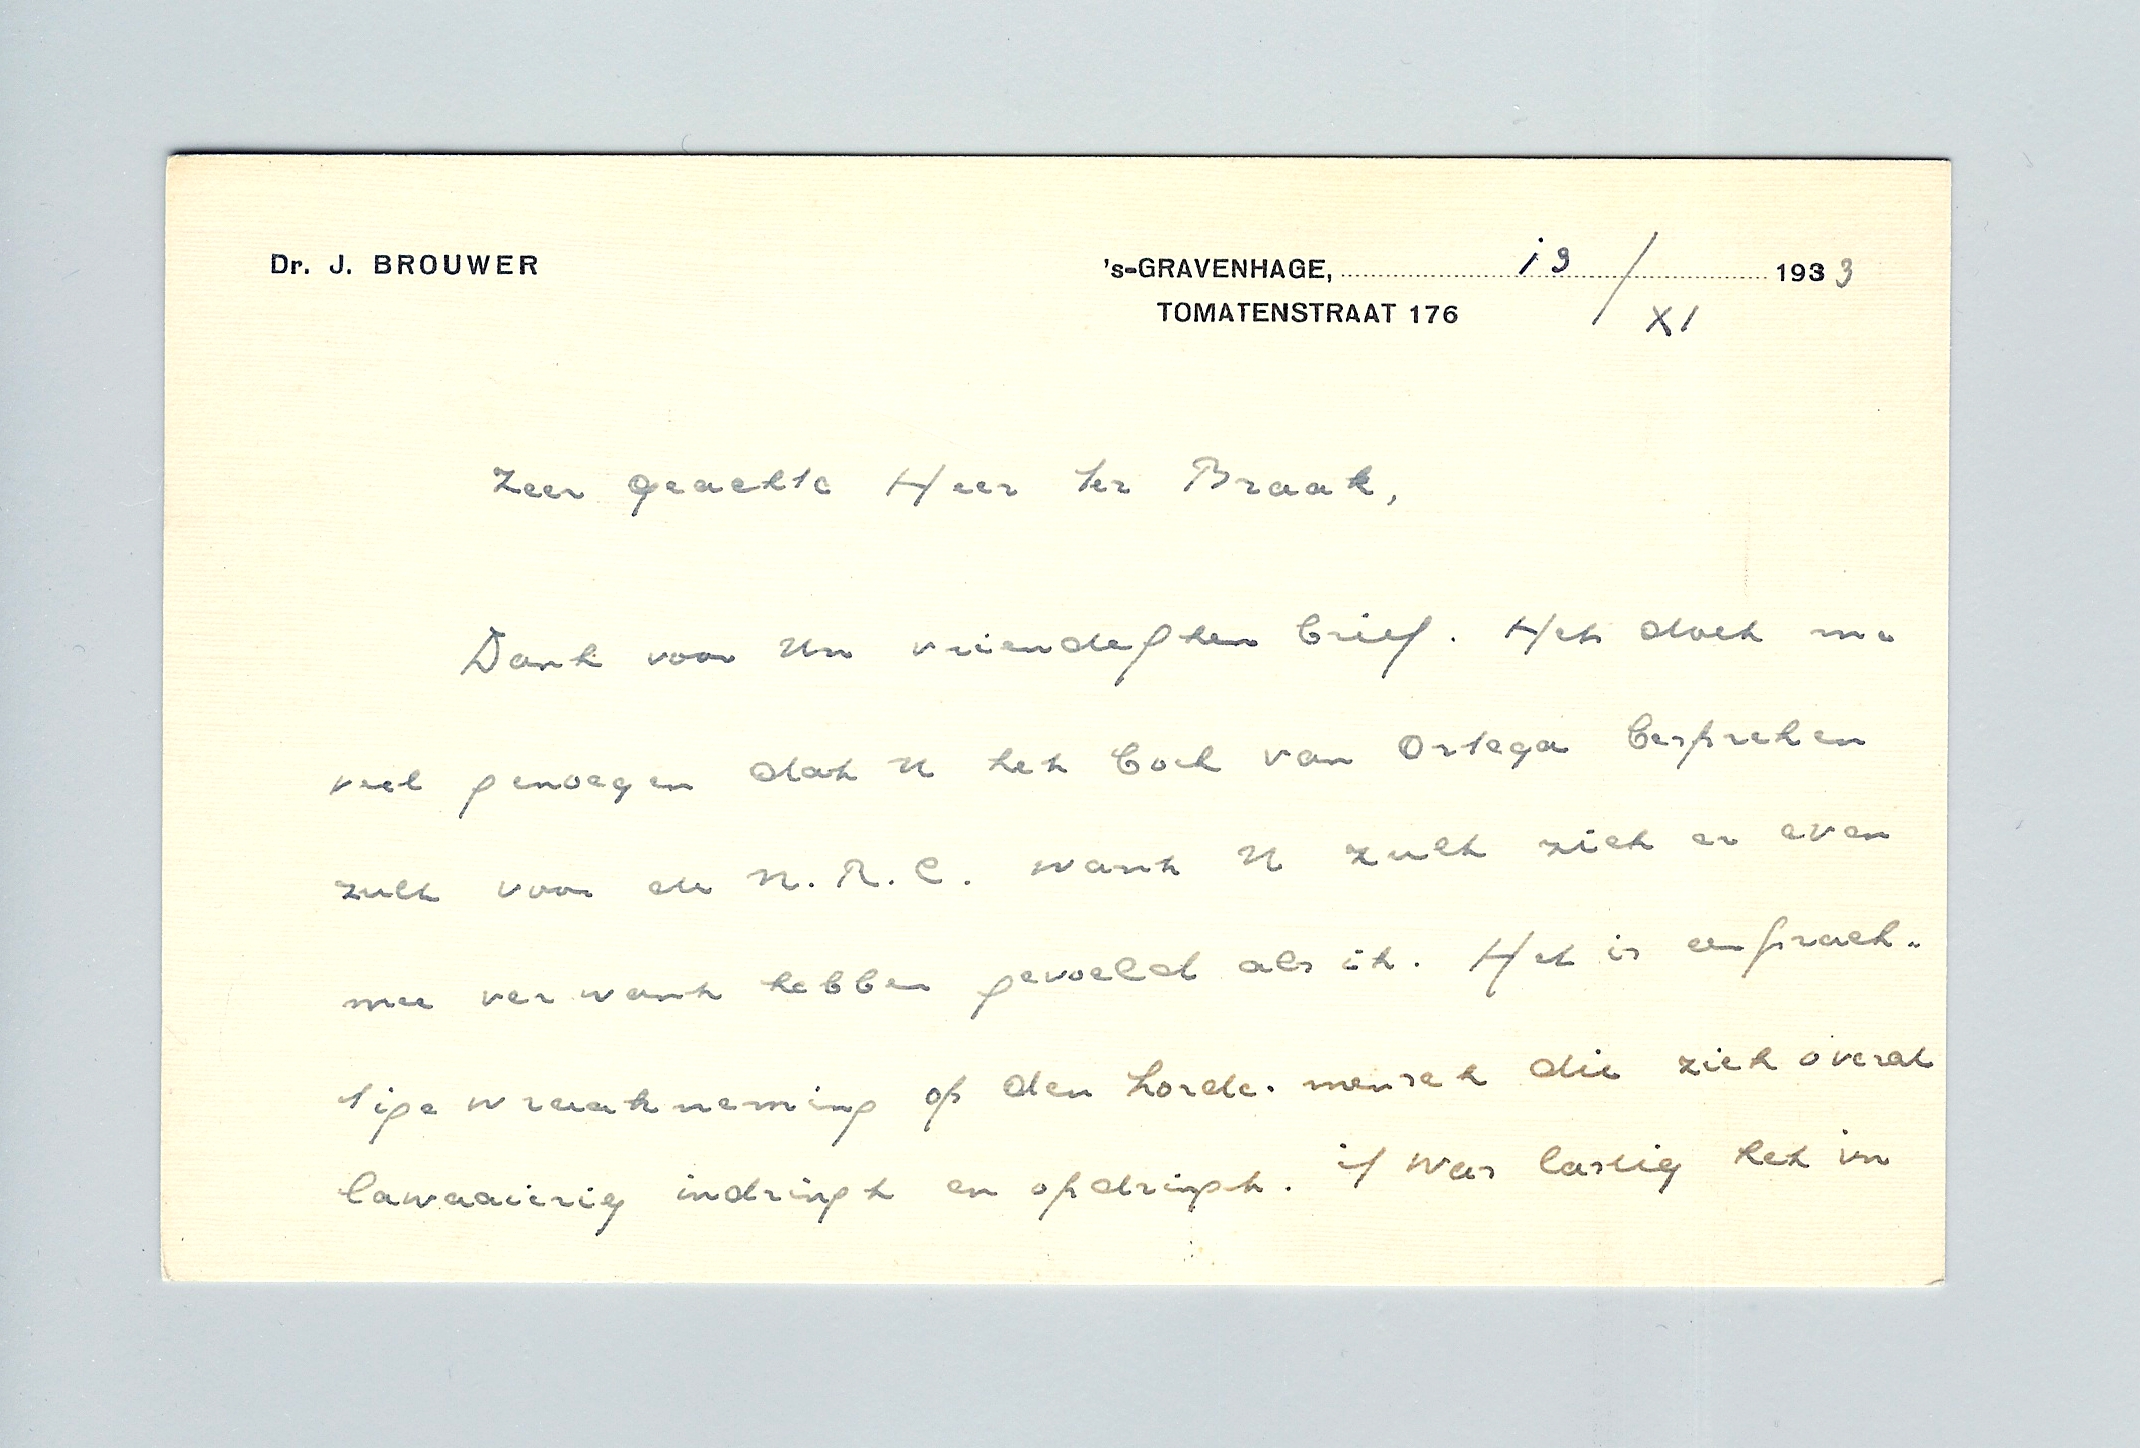 Dr. J. BROUWER
's-GRAVENHAGE, 19/XI 1933
TOMATENSTRAAT 176
Zeer geachte Heer ter Braak,
Dank voor Uw vriendelijken brief. Het doet me
veel genoegen dat U het boek van Ortega bespreken
zult voor de N.R.C. want U zult zich er even
mee verwant hebben gevoeld als ik. Het is een prach-
tige wraakneming op den horde-mensch die zich overal
lawaaierig indringt en opdringt. 't Was lastig het in